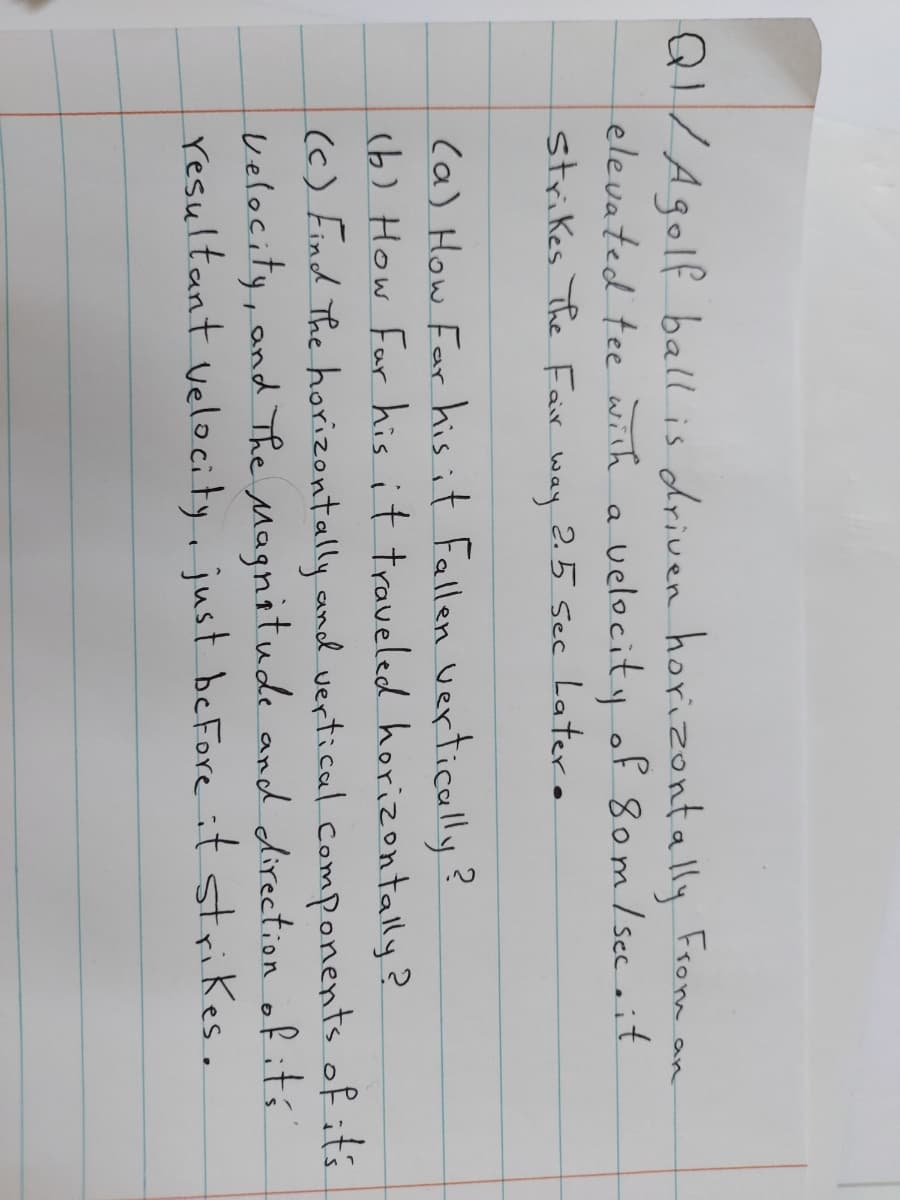 Q1/ A golf ball is driven horizontally From an
elevated tee with a velocity of 80m/sec. it
strikes The Fair way 2.5 sec Later.
(a) How Far his it Fallen vertically?
(b) How Far his it traveled horizontally?
(c) Find The horizontally and vertical components of it's
velocity, and The Magnitude and direction of it's
resultant velocity, just before it strikes.